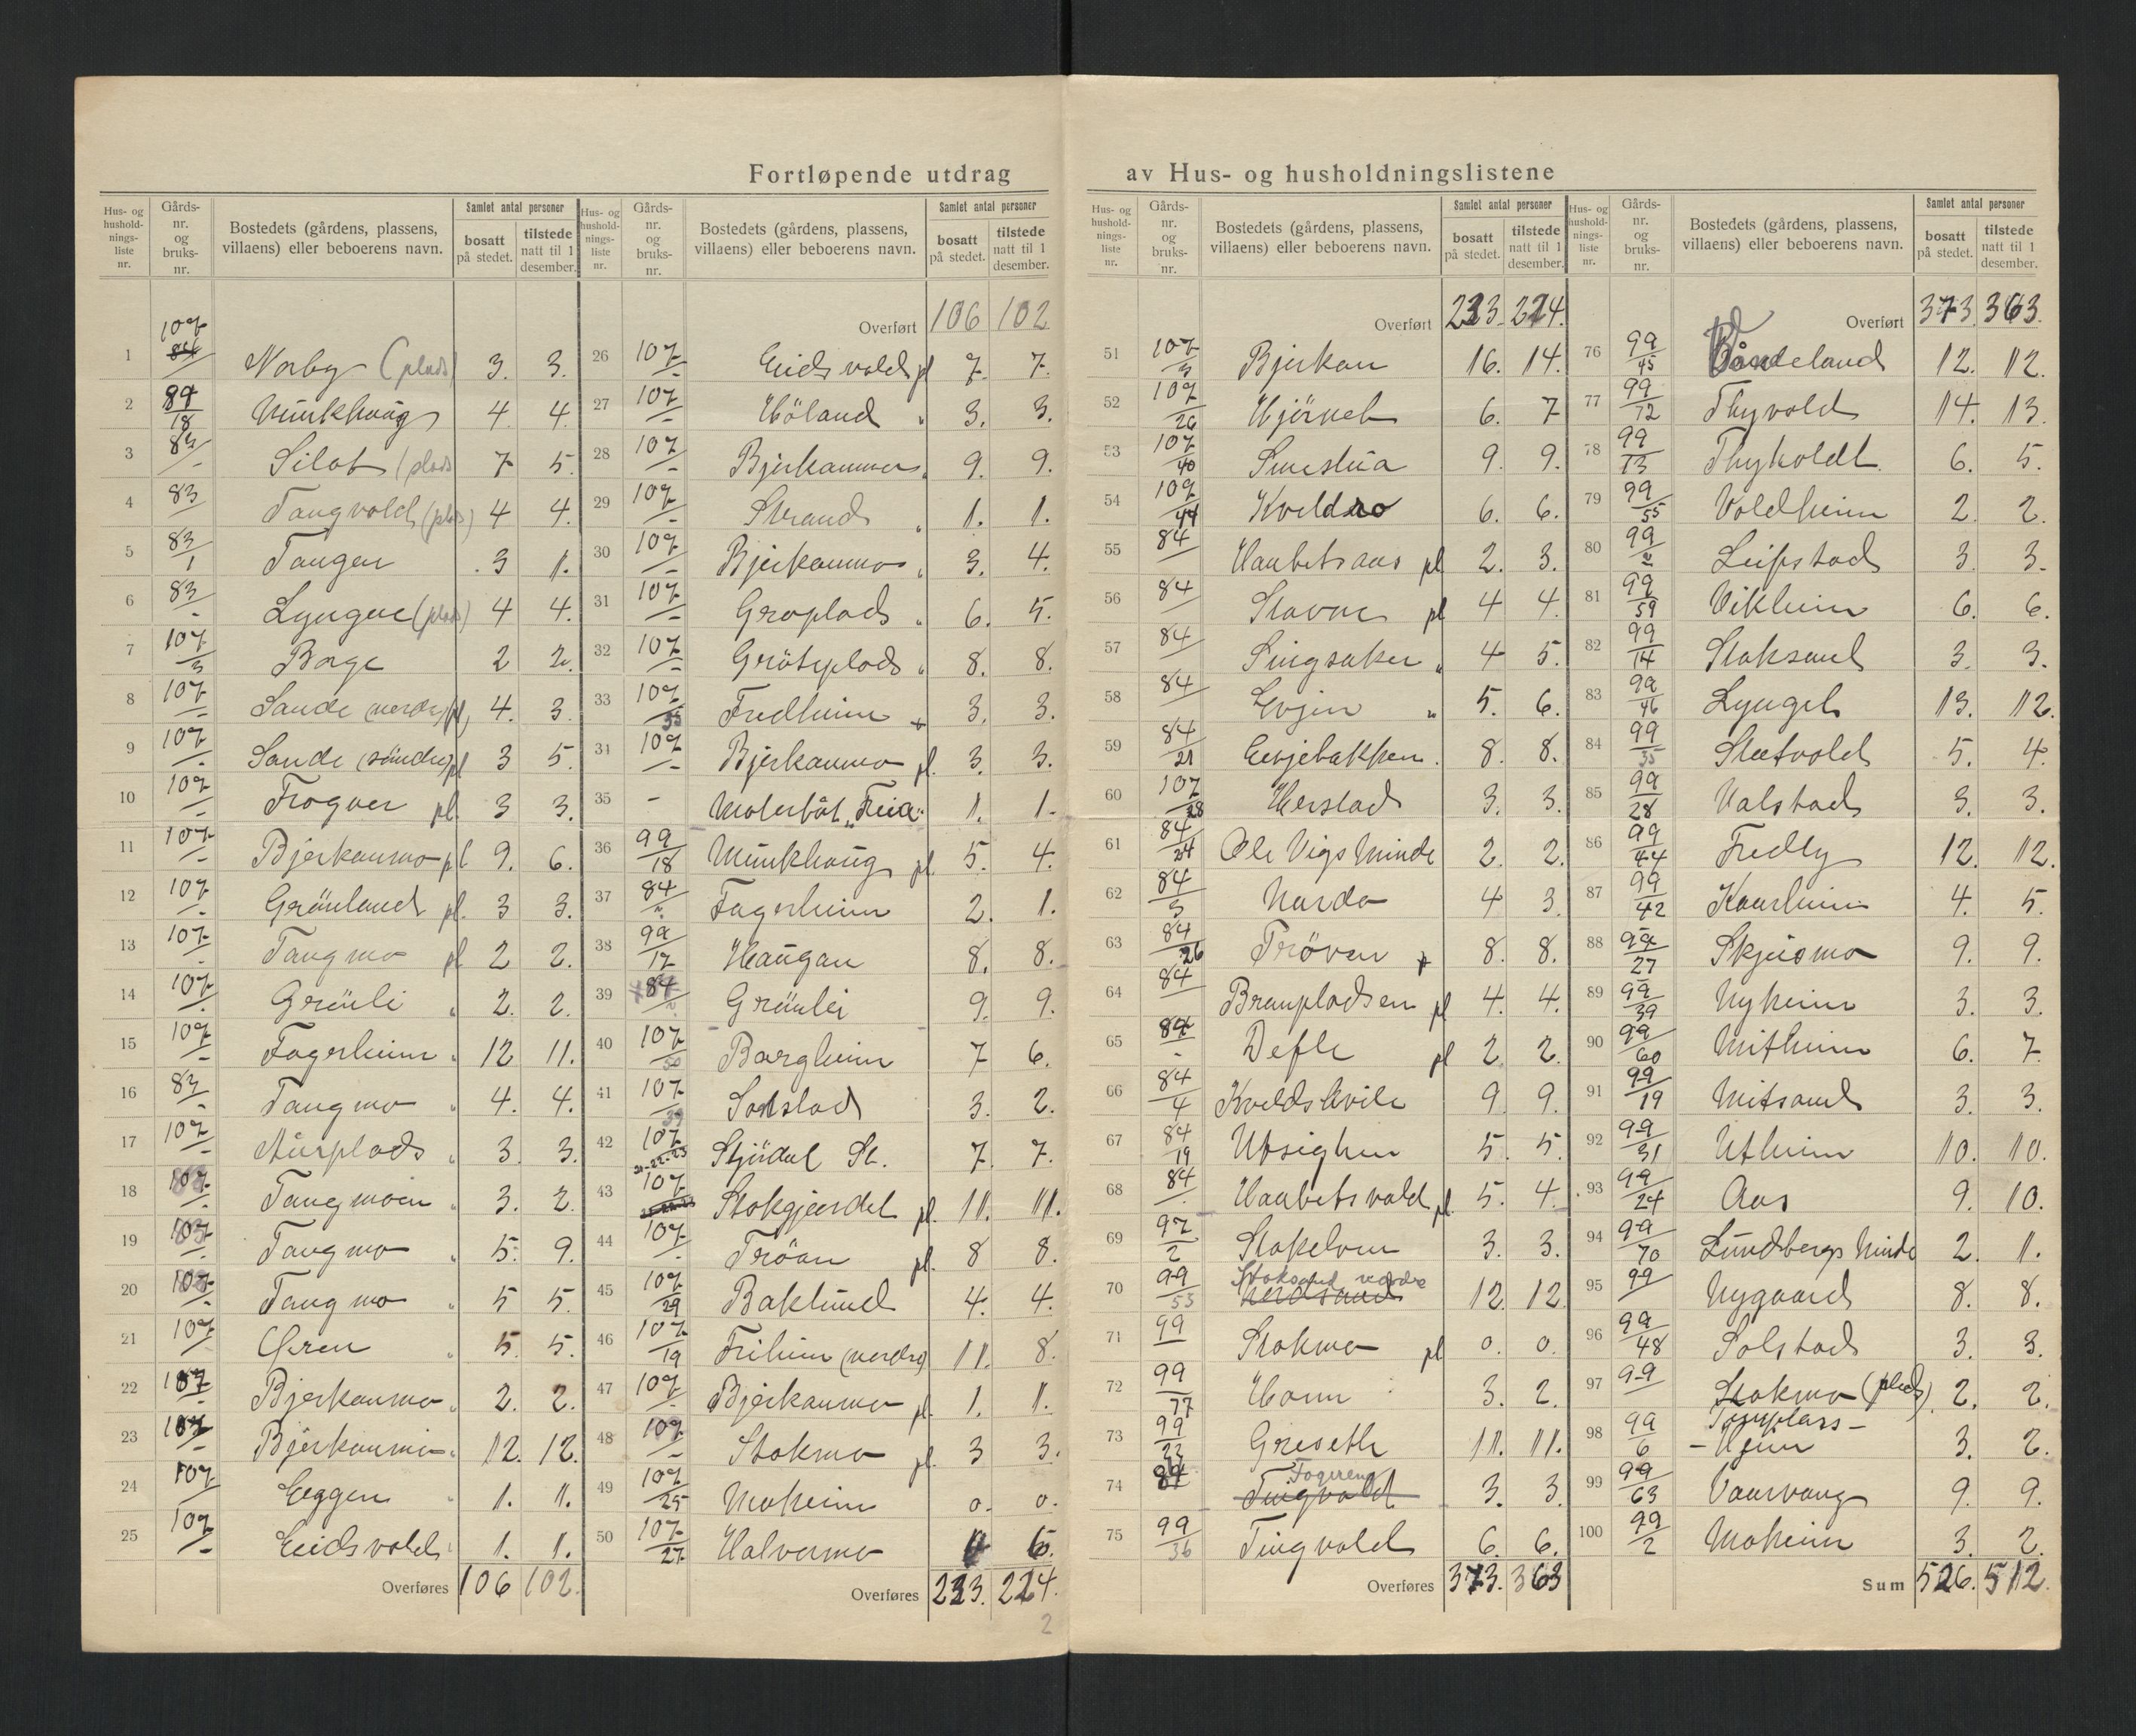 Fortløpende utdrag av Hus- og husholdningslistene
Hus- og husholdningsliste nr. | Gårdsnr. og bruksnr. | Bostedets (gårdens, plassens, villaens) eller beboerens navn. | Samlet antal personer bosatt på stedet. | tilstede natt til 1 desember.
1 107/- Norby (plads) 3. 3.
2 84/18 Munkhaug 4 4.
3 83/- Silot (plads 7 5.
4 83/ Tangvold (plads) 4 4.
5 83/1 Tangen 3 1.
6 83/- Lyngen (plads) 4 4.
7 107/3 Borge 2 2.
8 107/- Sande (nordre) pl, 4. 3
9 107/- Sande (søndre) pl 3 5.
10 107/- Frogner pl. 3 3.
11 107/- Bjerkanmo pl 9. 6.
12 107/- Grönland pl. 3 3.
13 107/- Tangmo pl 2 2.
14 107/- Grönli " 2. 2.
15 107/- Fagerheim " 12 11.
16 83/- Tangmo " 4. 4.
17 107/- Aunplads " 3. 3.
18 107/- Tangmoen " 3. 2.
19 107/- Tangmo " 5. 9.
20 107/- Tangmo " 5 5.
21 107/ Øren " 5. 5.
22 107/- Bjerkanmo " 2. 2.
23 107/- Bjerkanmo " 12. 12.
24 107/ Eggen " 1. 1.
25 107/- Eidsvold " 1. 1.
Overføres 106 102.
Overført 106 102
26 107/- Eidsvold pl 7. 7.
27 107/- Höland " 3. 3.
28 107/- Bjerkanmo " 9. 9.
29 107/- Strand " 1. 1.
30 107/- Bjerkanmo " 3. 4.
31 107/- Groplads " 6. 5.
32 107/- Gröteplads " 8. 8.
33 107/35 Fredheim 3. 3.
34 107/- Bjerkanmo pl. 3. 3.
35 - Motorbåt "Freia" 1. 1.
36 99/18 Munkhaug pl. 5. 4.
37 84/ Fagerheim 2. 1.
38 99/17 Haugan 8. 8.
39 84/ Grönlei 9. 9.
40 107/50 Borgheim 7 6.
41 107/39 Solstad 3. 2.
42 107/21-22-23 Stjördal St. 7. 7.
43 107/ Stokgjerdet pl. 11. 11.
44 107/- Tröan pl. 8 8.
45 107/29 Baklund 4. 4.
46 107/19 Friheim (nordre) 11. 8.
47 107/- Bjerkanmo pl. 1. 1.
48 107/- Stokmo pl. 3 3.
49 107/25 Moheim 0. 0.
50 107/27 Halvormo 6.
Overføres 223. 224.
Overført 223. 224.
51 107/3 Bjerkan 16. 14.
52 107/26 Hjörnet 6. 7
53 107/40 Smestua 9. 9.
54 107/44 Kveldro 6. 6.
55 84/ Haabetsaas pl 2. 3.
56 84/ Stavne pl 4 4.
57 84/ Singsaker " 4 5.
58 84/ Evjen " 5. 6.
59 84/21 Evjebakken. 8. 8.
60 107/28 Herstad 3. 3.
61 84/24 Ole Vigs Minde 2. 2.
62 84/3 Nordo 4 3.
63 84/26 Pröven 8. 8.
64 84/ Branpladsen pl 4. 4.
65 84/- Defle pl 2. 2.
66 84/4 Kveldshvile 9. 9.
67 84/19 Utsigten 5. 5.
68 84/- Haabetsvold pl. 5. 4.
69 97/2 Stokelven 3. 3.
70 99/53 Stoksand nordre 12. 12.
71 99/ Stokmo pl 0. 0.
72 99/77 Horn 3. 2.
73 99/22 Greseth 11. 11.
74 84 Fogereng Tingvold 3. 3.
75 99/36 Tingvold 6. 6.
Overføres 373. 363
Overført 373. 363.
76 99/45 12. 12.
77 99/72 Thyvold 14. 13.
78 99/73 Thyholdt 6. 5.
79 99/55 Voldheim 2. 2.
80 99/ Leifstad 3. 3.
81 99/59 Vikheim 6. 6.
82 99/14 Stoksand 3. 3.
83 99/46 Lynget 13. 12.
84 99/35 Sletvold 5. 4.
85 99/28 Valstad 3. 3.
86 99/44 Fredly 12. 12.
87 99/42 Kaarheim 4. 5.
88 99/27 Skjeismo 9. 9.
89 99/39 Nyheim 3. 3.
90 99/60 Mitheim 6. 7.
91 99/19 Mitsand 3. 3.
92 99/31 Utheim 10. 10.
93 99/24 Aas 9. 10.
94 99/70 Lundbergs Minde 2. 1.
95 99/ Nygaard 8. 8.
96 99/48 Solstad 3. 3.
97 99 Stokmo (plads) 2. 2.
98 99/6 3. 2.
99 99/63 Vaarvang 9. 9.
100 99/2 Moheim 3. 2.
Sum 526. 512.
2